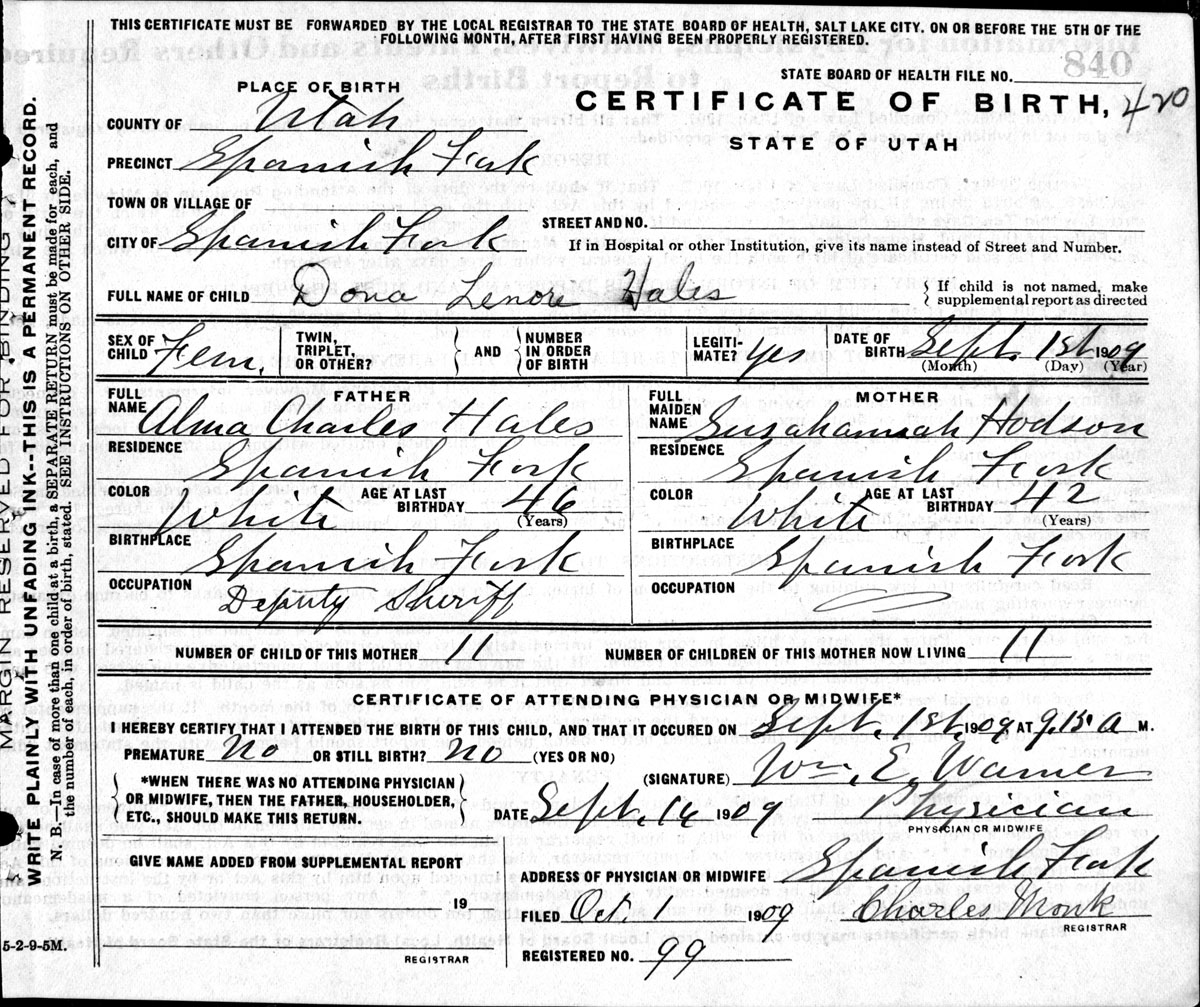 THIS CERTIFICATE MUST BE FORWARDED BY THE LOCAL REGISTRAR TO THE STATE BOARD OF HEALTH, SALT LAKE CITY. ON OR BEFORE THE 5TH OF THE
FOLLOWING MONTH, AFTER FIRST HAVING BEEN PROPERLY REGISTERED.
STATE BOARD OF HEALTH FILE NO. 840
PLACE OF BIRTH
CERTIFICATE OF BIRTH, 420
STATE OF UTAH
COUNTY OF Utah
PRECINCT Spanish Fork
TOWN OR VILLAGE OF
STREET AND NO.
CITY OF Spanish Fork
If in Hospital or other Institution, give its name instead of Street and Number.
FULL NAME OF CHILD Dona Lenore Hales
If child is not named, make
supplemental report as directed
SEX OF CHILD Fem. TWIN, TRIPLET, OR OTHER? AND NUMBER IN ORDER OF BIRTH LEGITI-MATE? yes DATE OF BIRTH Sept. 1st. 1909
(Month) (Day) (Year)
FATHER
FULL NAME Alma Charles Hales
RESIDENCE Spanish Fork
COLOR White AGE AT LAST BIRTHDAY 46
(Years)
BIRTHPLACE Spanish Fork
OCCUPATION Deputy Sheriff
MOTHER
FULL MAIDEN NAME Suzahannah Hodson
RESIDENCE Spanish Fork
COLOR White AGE AT LAST BIRTHDAY 42
(Years)
BIRTHPLACE Spanish Fork
OCCUPATION
NUMBER OF CHILD OF THIS MOTHER 11 NUMBER OF CHILDREN OF THIS MOTHER NOW LIVING 11
CERTIFICATE OF ATTENDING PHYSICIAN OR MIDWIFE*
I HEREBY CERTIFY THAT I ATTENDED THE BIRTH OF THIS CHILD, AND THAT IT OCCURED ON Sept. 1st, 1909 AT 9.15 A M.
PREMATURE No OR STILL BIRTH? No (YES OR NO)
*WHEN THERE WAS NO ATTENDING PHYSICIAN
OR MIDWIFE, THEN THE FATHER, HOUSEHOLDER,
ETC., SHOULD MAKE THIS RETURN.
(SIGNATURE) Wm. E. Warner
DATE Sept. 1909 Physician
PHYSICIAN OR MIDWIFE
GIVE NAME ADDED FROM SUPPLEMENTAL REPORT
19
REGISTRAR
ADDRESS OF PHYSICIAN OR MIDWIFE Spanish Fork
FILED Oct 1 1909 Charles Monk
REGISTRAR
REGISTERED NO. 99
5-2-9-5M.
MARGIN RESERVED FOR BINDING
WRITE PLAINLY WITH UNFADING INK--THIS IS A PERMANENT RECORD.
N. B.—In case of more than one child at a birth, a SEPARATE RETURN must be made for each, and
the number of each, in order of birth, stated. SEE INSTRUCTIONS ON OTHER SIDE.